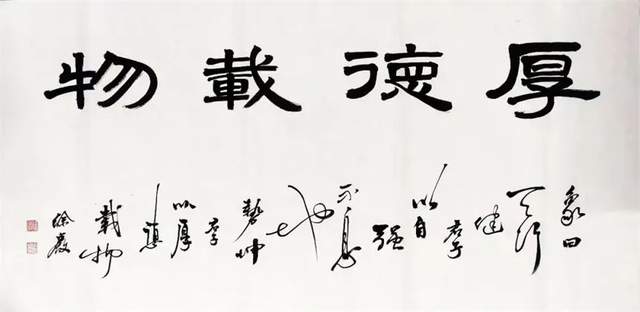 厚德載物
象曰
天行
健
君子
以自
强
不息
地
勢坤
君子
以厚
德
載物
徐